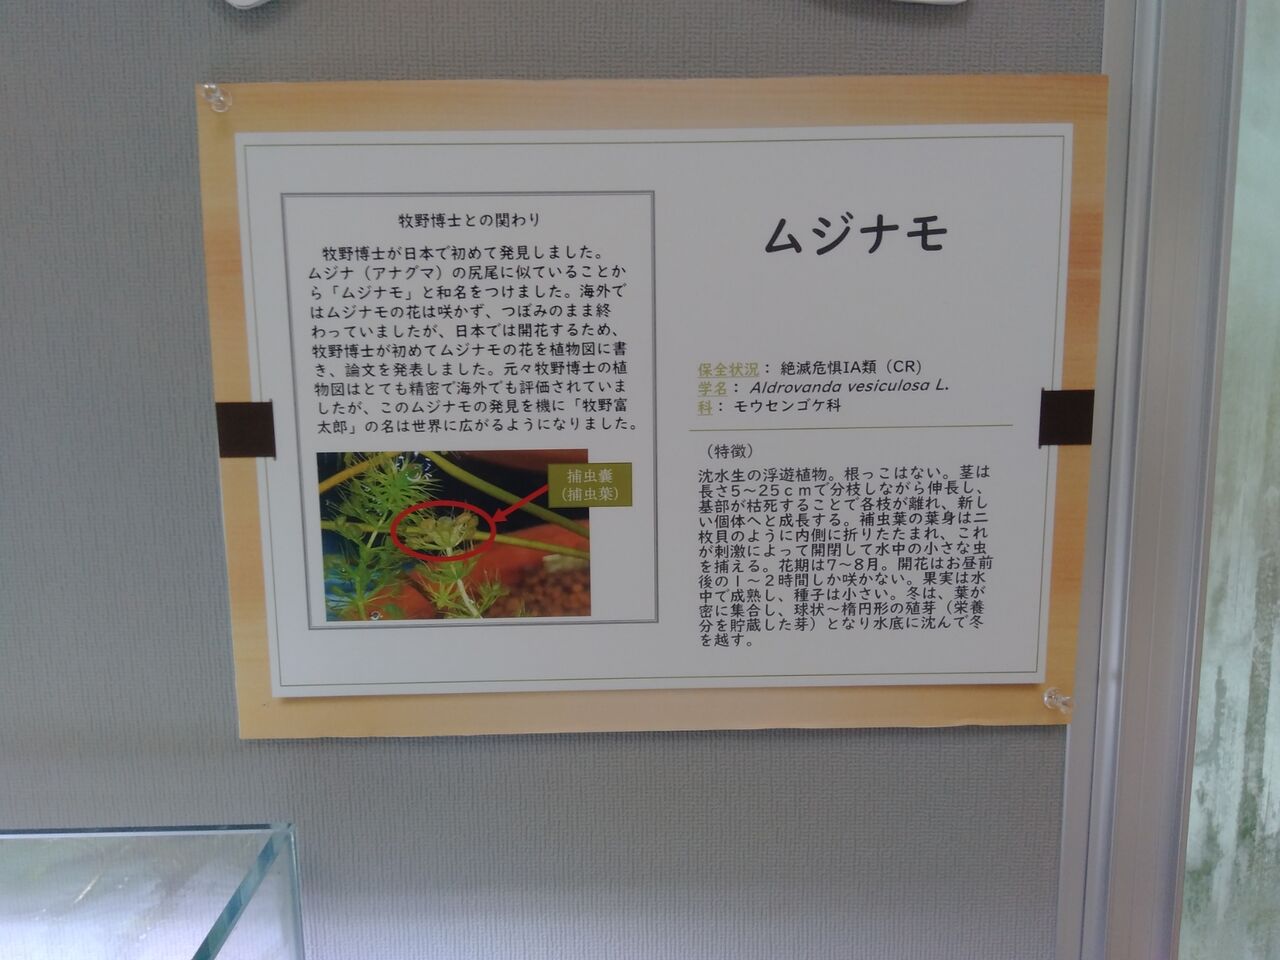 牧野博士との関わり
牧野博士が日本で初めて発見しました。
ムジナ（アナグマ）の尻尾に似ていることか
ら「ムジナモ」と和名をつけました。海外で
はムジナモの花は咲かず、つぼみのまま終
わっていましたが、日本では開花するため、
牧野博士が初めてムジナモの花を植物図に書
き、論文を発表しました。元々牧野博士の植
物図はとても精密で海外でも評価されていま
したが、このムジナモの発見を機に「牧野富
太郎」の名は世界に広がるようになりました。
捕虫嚢
（捕虫葉）
ムジナモ
保全状況： 絶滅危惧IA類（CR）
学名： Aldrovanda vesiculosa L.
科： モウセンゴケ科
（特徴）
沈水生の浮遊植物。根っこはない。茎は
長さ5～25ｃｍで分枝しながら伸長し、
基部が枯死することで各枝が離れ、新し
い個体へと成長する。補虫葉の葉身は二
枚貝のように内側に折りたたまれ、これ
が刺激によって開閉して水中の小さな虫
を捕える。花期は7～8月。開花はお昼前
後の1～2時間しか咲かない。果実は水
中で成熟し、種子は小さい。冬は、葉が
密に集合し、球状～楕円形の殖芽（栄養
分を貯蔵した芽）となり水底に沈んで冬
を越す。